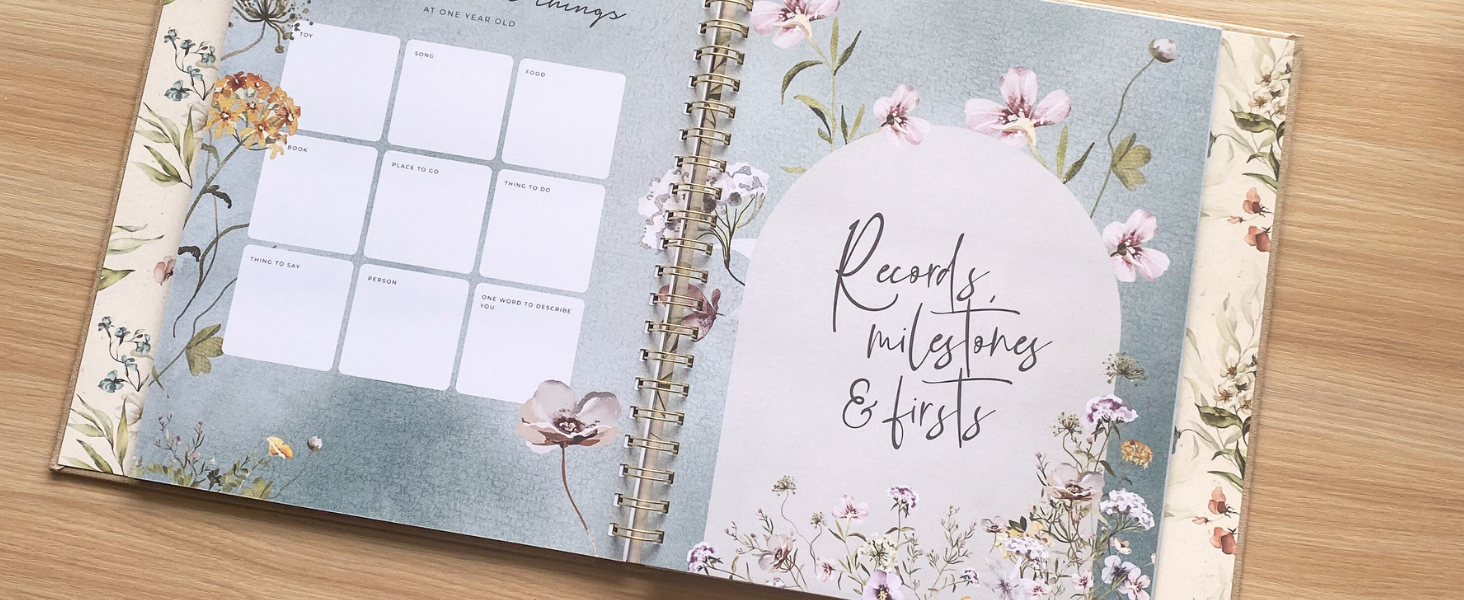 things
AT ONE YEAR OLD
TOY
SONG
FOOD
BOOK
PLACE TO GO
THING TO DO
THING TO SAY
PERSON
ONE WORD TO DESCRIBE
YOU
Records,
milestones
& firsts